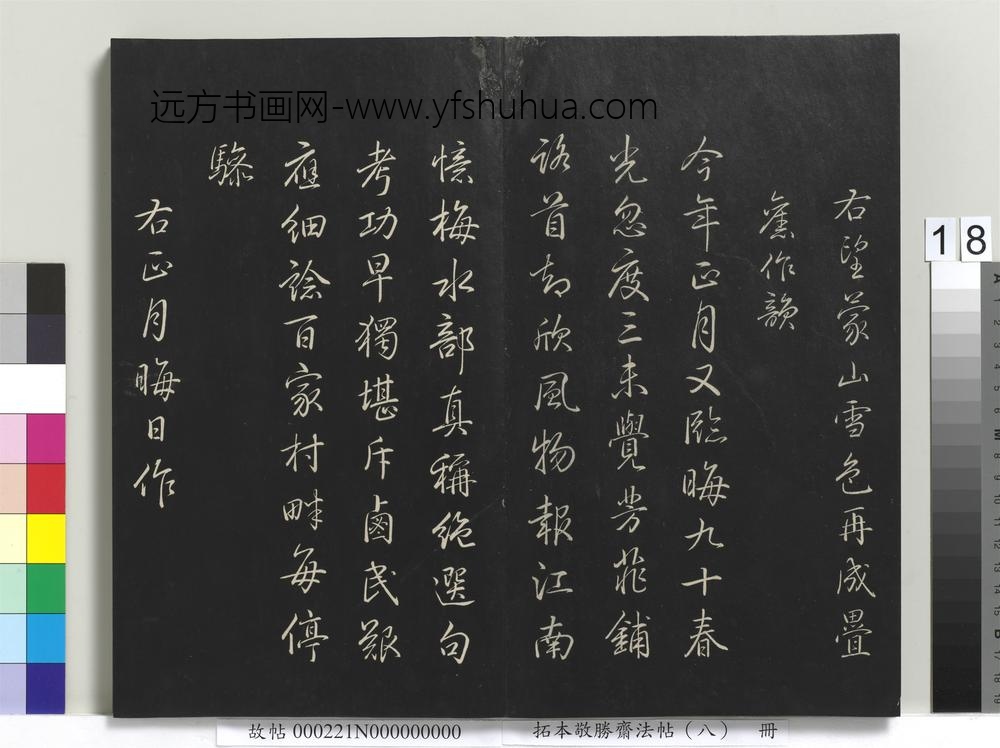 远方书画网-www.yfshuhua.com
右望蒙山雪色再成疊
舊作韻
今年正月又臨晦九十春
光忽度三未覺芳菲鋪
路首却欣風物報江南
憶梅水部真稱絕選句
考功早獨堪斥鹵民艱
應細諗百家村畔每停
驂
右正月晦日作
18
故帖 000221N000000000
拓本敬勝齋法帖（八） 冊